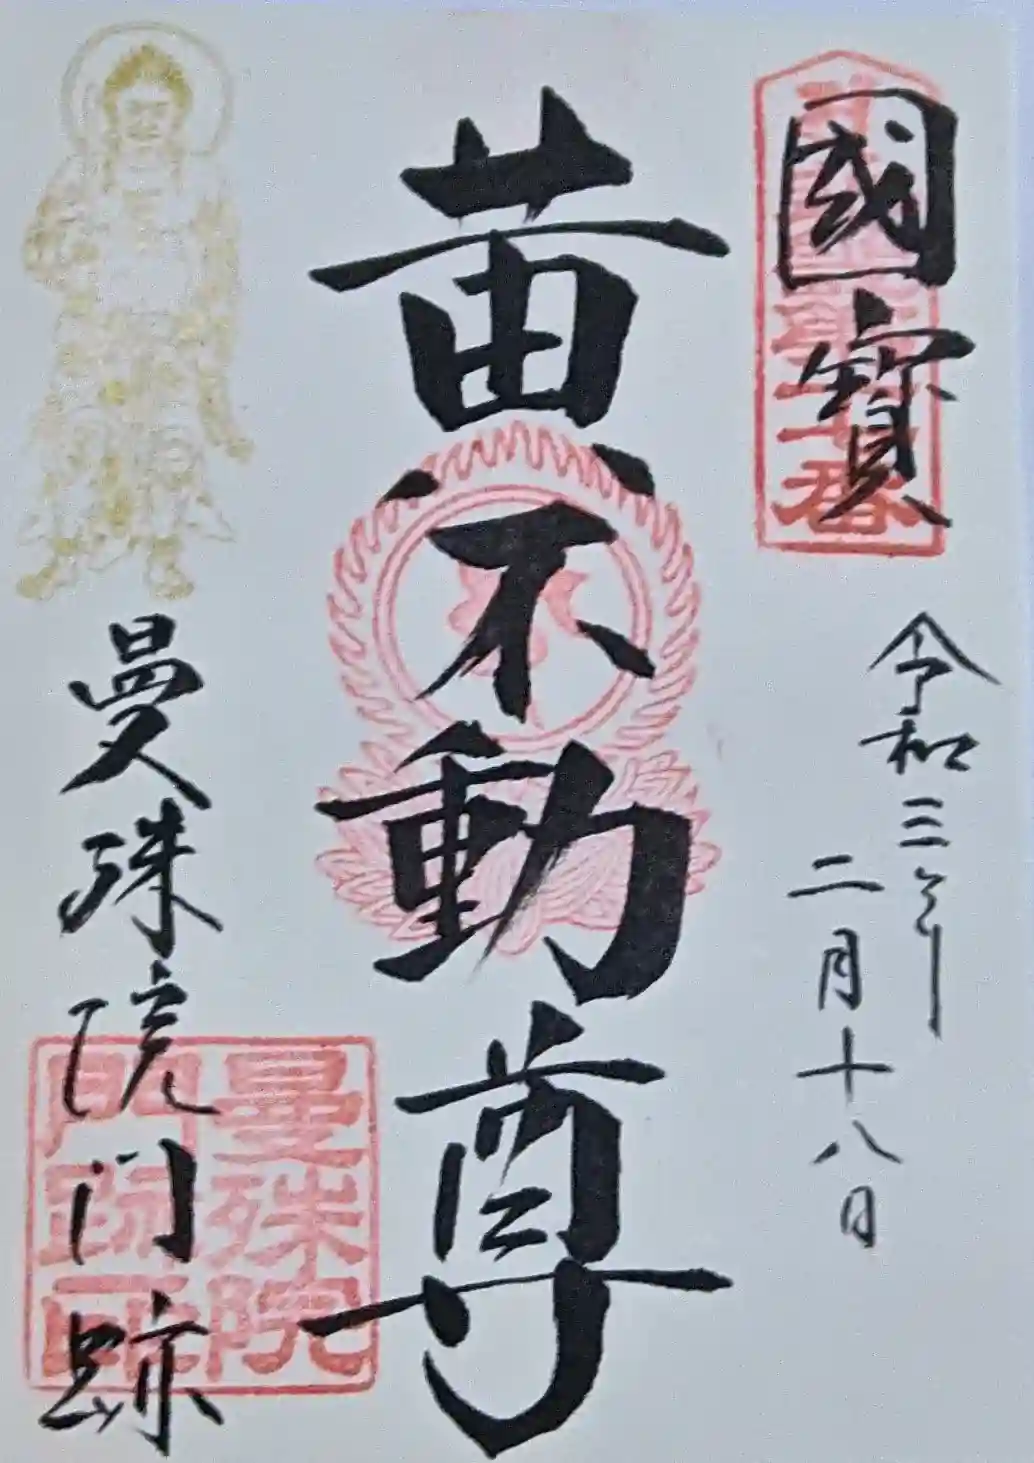 國寶
令和三年
二月十八日
黄不動尊
曼殊院門跡
曼殊院
門跡